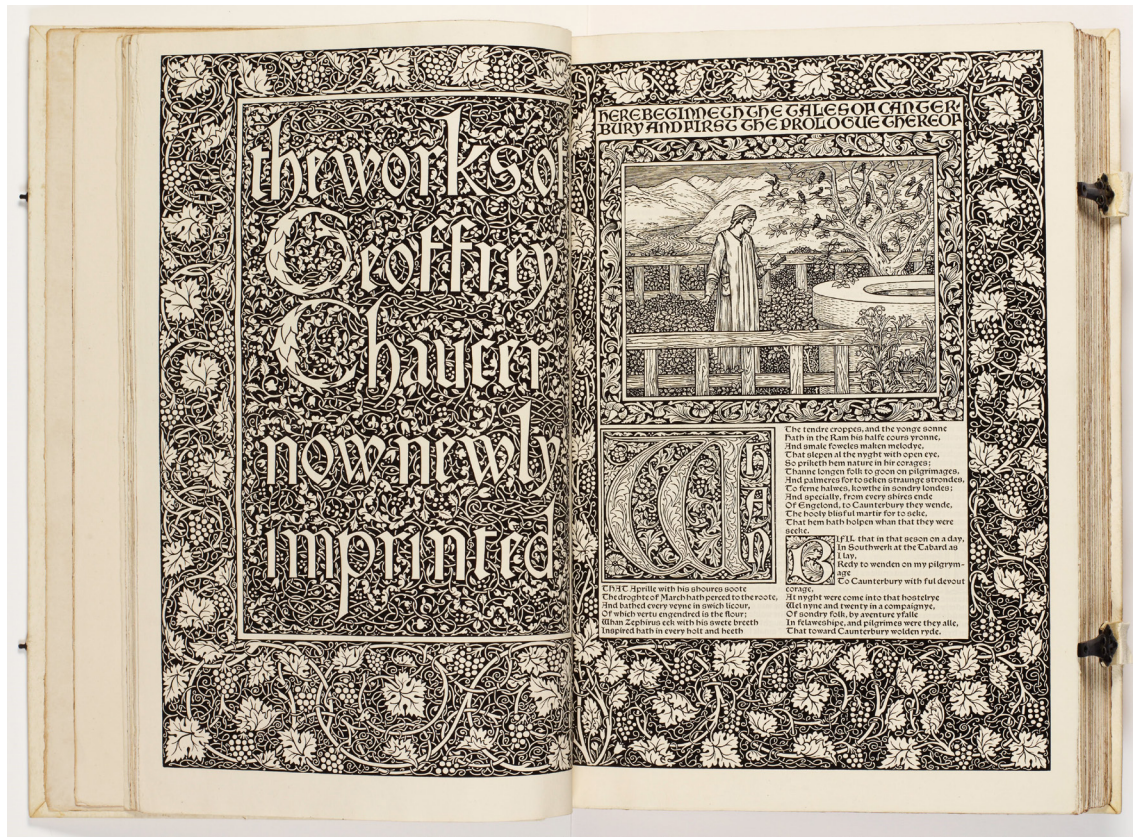 the works of
Geoffrey
Chaucer
now newly
imprinted
HERE BEGINNETH THE TALES OF CANTER-
BURY AND FIRST THE PROLOGUE THEREOF
WHAN
THAT Aprille with his shoures soote
The droghte of March hath perced to the roote,
And bathed every veyne in swich licour,
Of which vertu engendred is the flour;
Whan Zephirus eek with his swete breeth
Inspired hath in every holt and heeth
The tendre croppes, and the yonge sonne
Hath in the Ram his halfe cours yronne,
And smale foweles maken melodye,
That slepen al the nyght with open eye,
So priketh hem nature in hir corages;
Thanne longen folk to goon on pilgrimages,
And palmeres for to seken straunge strondes,
To ferne halwes, kowthe in sondry londes;
And specially, from every shires ende
Of Engelond, to Caunterbury they wende,
The hooly blisful martir for to seke,
That hem hath holpen whan that they were
seeke.
BIFIL that in that seson on a day,
In Southwerk at the Tabard as
I lay,
Redy to wenden on my pilgrym-
age
To Caunterbury with ful devout
corage,
At nyght were come into that hostelrye
Wel nyne and twenty in a compaignye,
Of sondry folk, by aventure yfalle
In felaweshipe, and pilgrimes were they alle,
That toward Caunterbury wolden ryde.